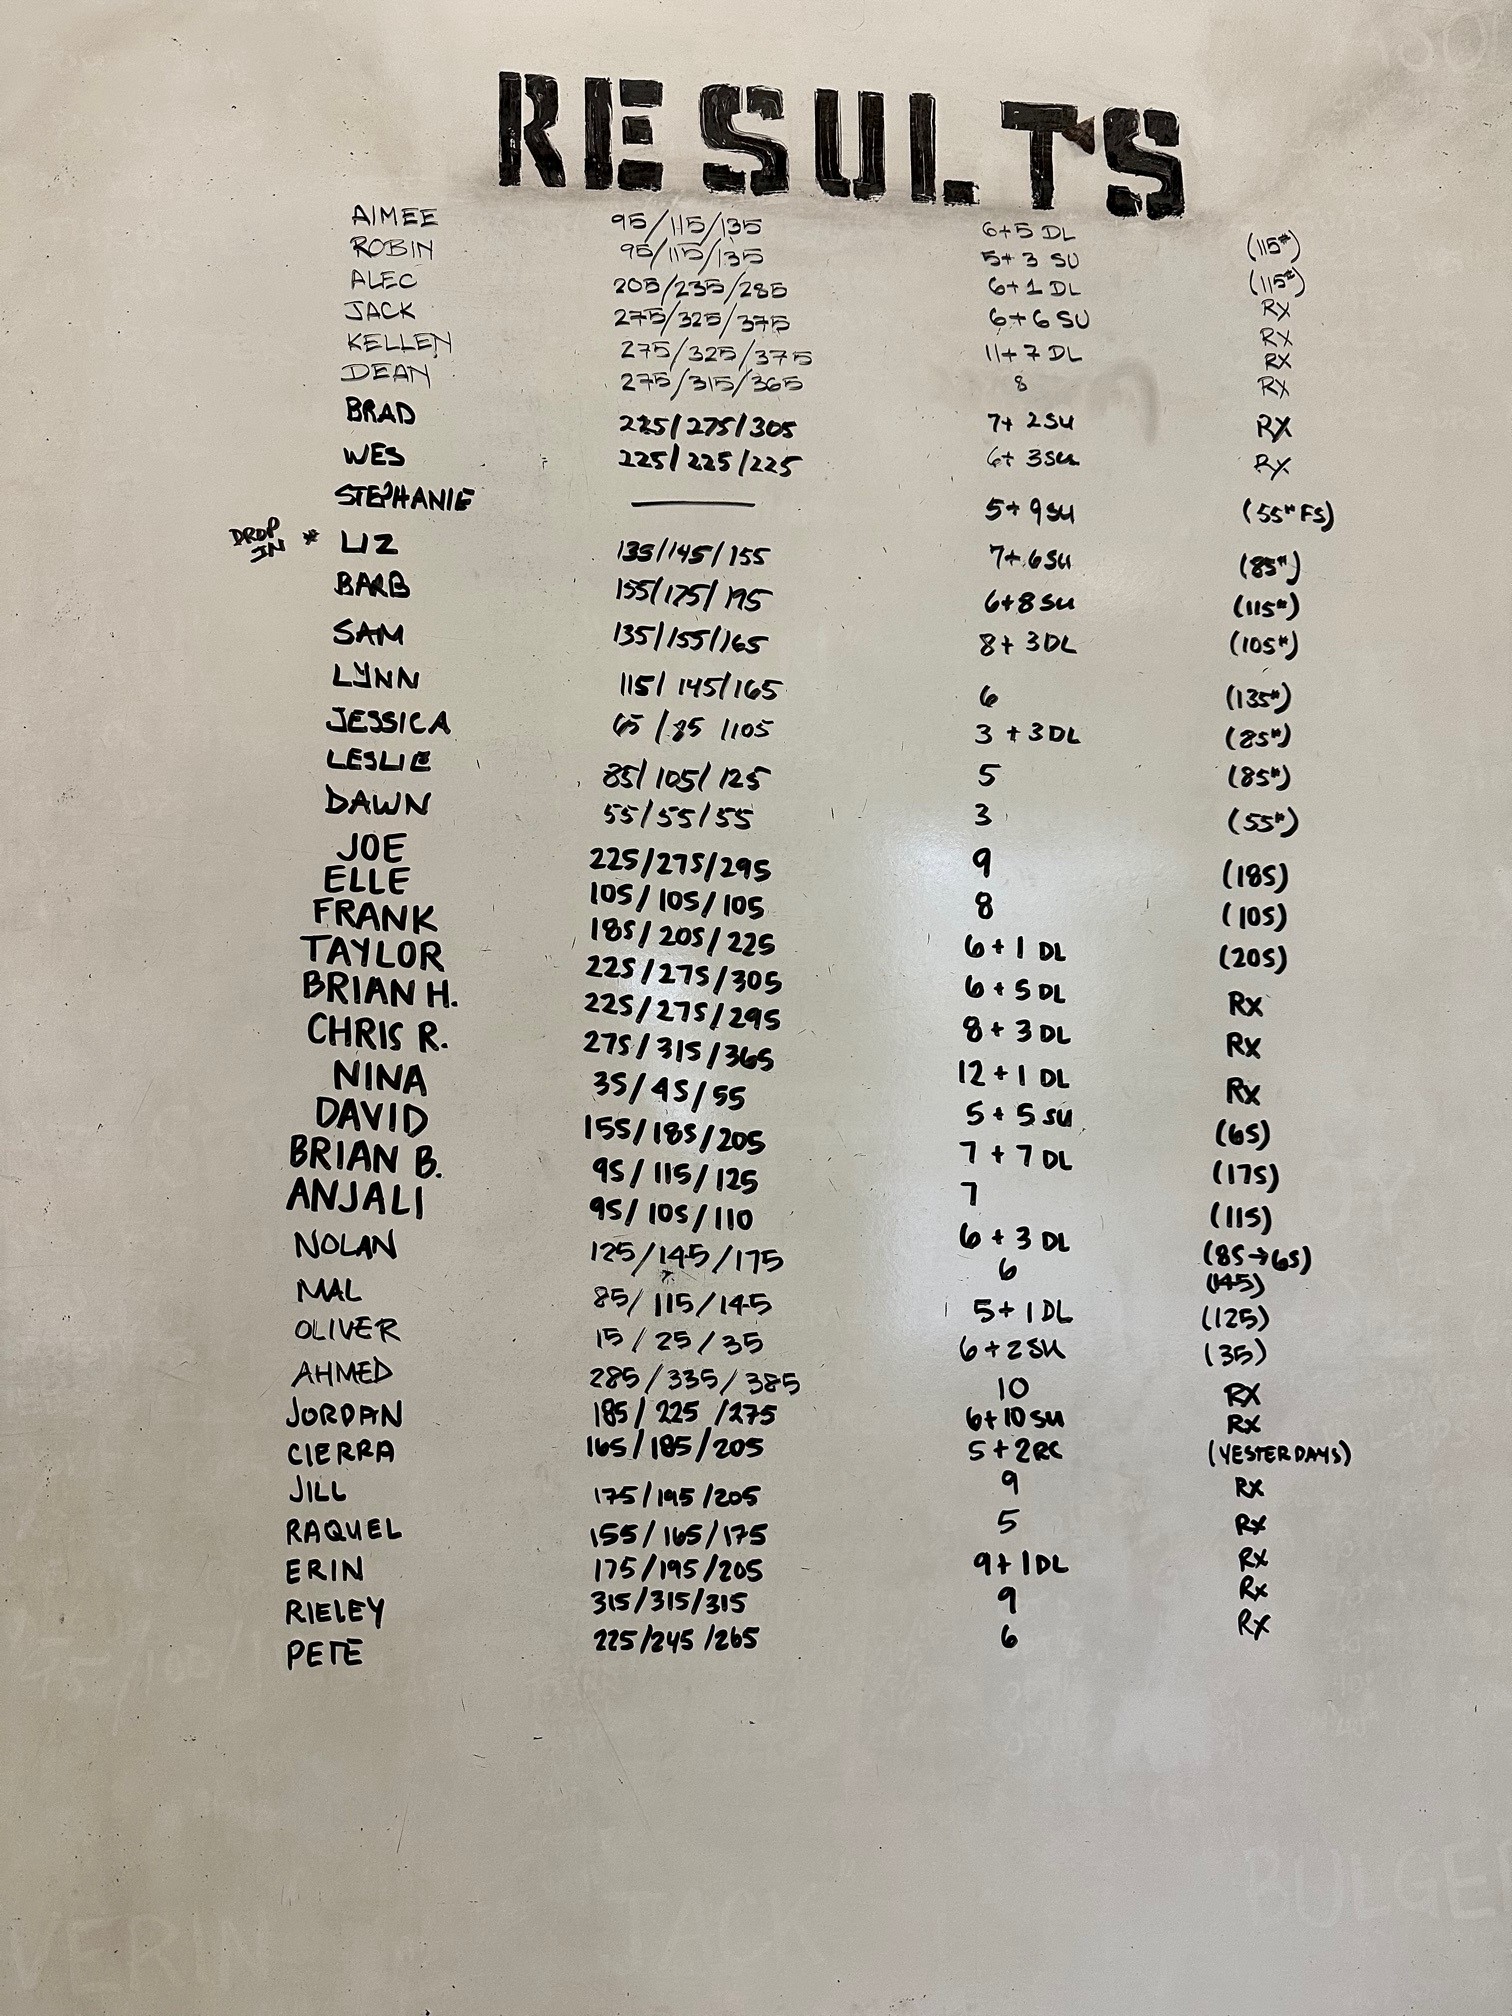 RESULTS
AIMEE 95/115/135 6+5 DL (115#)
ROBIN 95/115/135 5+3 SU (115#)
ALEC 205/235/285 6+1 DL RX
JACK 275/325/375 6+6 SU RX
KELLEN 275/325/375 11+7 DL RX
DEAN 275/315/365 8 RX
BRAD 225/275/305 7+2SU RX
WES 225/225/225 6+3SU RX
STEPHANIE — 5+9SU (55# FS)
DROP IN * LIZ 135/145/155 7+6SU (85#)
BARB 155/175/195 6+8SU (115#)
SAM 135/155/165 8+3DL (105#)
LYNN 115/145/165 6 (135#)
JESSICA 65/85/105 3+3DL (85#)
LESLIE 85/105/125 5 (85#)
DAWN 55/55/55 3 (55#)
JOE 225/275/295 9 (185)
ELLE 105/105/105 8 (105)
FRANK 185/205/225 6+1 DL (205)
TAYLOR 225/275/305 6+5 DL Rx
BRIAN H. 225/275/295 8+3 DL Rx
CHRIS R. 275/315/365 12+1 DL Rx
NINA 35/45/55 5+5 SU (65)
DAVID 155/185/205 7+7 DL (175)
BRIAN B. 95/115/125 7 (115)
ANJALI 95/105/110 6+3 DL (85→65)
NOLAN 125/145/175 6 (145)
MAL 85/115/145 5+1DL (125)
OLIVER 15/25/35 6+2SU (35)
AHMED 285/335/385 10 RX
JORDAN 185/225/275 6+10SU RX
CIERRA 165/185/205 5+2RC (YESTERDAYS)
JILL 175/195/205 9 RX
RAQUEL 155/165/175 5 RX
ERIN 175/195/205 9+1DL RX
RIELEY 315/315/315 9 RX
PETE 225/245/265 6 RX